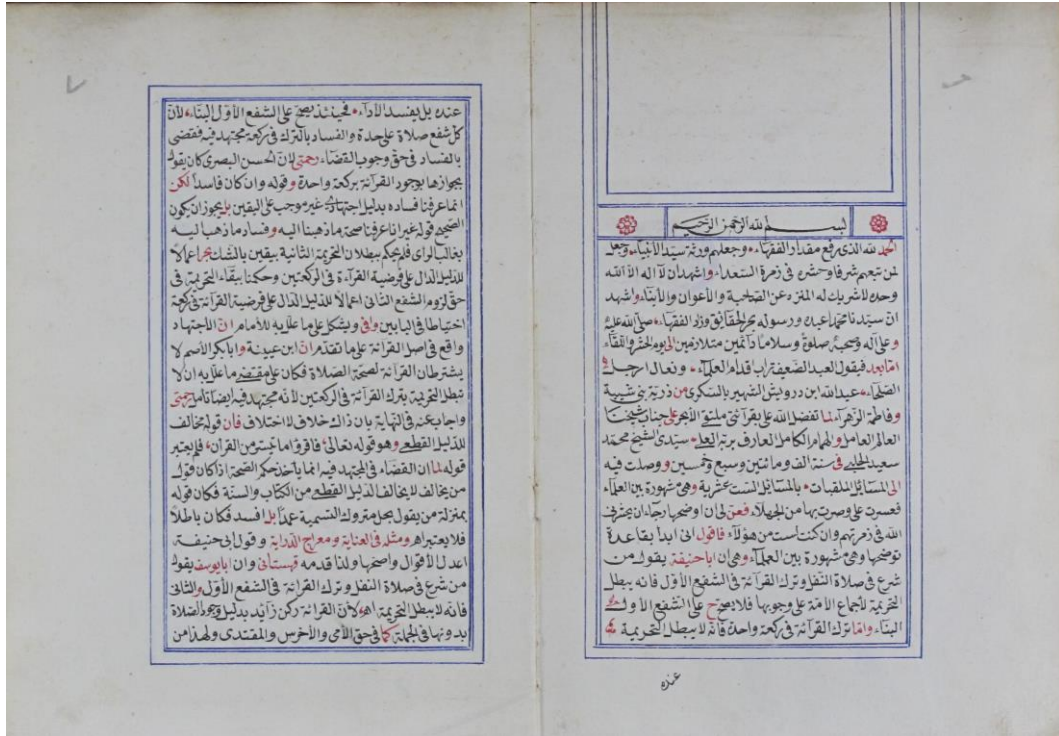 بسم الله الرحمن الرحيم
الحمد لله الذي رفع مقدار الفقهاء وجعلهم ورثة سيد الأنبياء وجعل
لمن تبعهم شرفا وحشره في زمرة السعداء واشهد ان لا اله الا الله
وحده لا شريك له المنزه عن الصاحبة والأعوان والأبناء واشهد
ان سيدنا محمدا عبده ورسوله بحر الحقايق وزاد الفقهاء صلى الله عليه
وعلى آله وصحبه صلوة وسلاما دائمين متلازمين الى يوم الحشر واللقاء
اما بعد فيقول العبد الضعيف تراب اقدام العلماء ونعال ارجل
الصلحاء عبد الله ابن درويش الشهير بالسكرى من ذرية بني شيبة
وفاطمة الزهراء لما تفضل الله على بقرآئتي ملتقى الأبحر على جناب شيخنا
العالم العامل والهمام الكامل العارف بربه العلى سيدى الشيخ محمد
سعيد الحلبى فى سنة الف ومائتين وسبع وخمسين ووصلت فيه
الى المسائل الملقبات بالمسائل الست عشرية وهى مشهورة بين العلماء
فعسرت على وصرت بها من الجهلاء فعن لى ان اوضحها رجاء ان يحشرنى
الله فى زمرتهم وان كنت لست من هؤلاء فاقول انى ابدأ بقاعدة
توضحها وهى مشهورة بين العلماء وهى ان ابا حنيفة يقول من
شرع فى صلاة النفل وترك القرآئة فى الشفع الأول فانه يبطل
التحريمة لأجماع الامة على وجوبها فلا يصح على الشفع الأول
البناء واما ترك القرآئة فى ركعة واحدة فانه لا يبطل التحريمة
عنده
عنده بل يفسد الادآء فحينئذ يصح على الشفع الأول البناء لأن
كل شفع صلاة على حدة والفساد بالترك فى ركعة مجتهد فيه فقضى
بالفساد فى حق وجوب القضاء رحمتى لان الحسن البصرى كان يقول
بجوازها بوجود القرآئة بركعة واحدة وقوله وان كان فاسدا لكن
انما عرفنا فساده بدليل اجتهادى غير موجب على اليقين بل يجوز ان يكون
الصحيح قوله غير انا عرفنا صحة ما ذهبنا اليه وفساد ما ذهب اليه
بغالب الراى فلم يحكم ببطلان التحريمة الثانية بيقين بالشك بحر اعمالا
للدليل الدال على فرضية القرآءة فى الركعتين وحكمنا ببقاء التحريمة فى
حق لزوم الشفع الثانى اعمالا للدليل الدال على فرضية القرآئة فى ركعة
احتياطا فى البابين وافى ويشكل على ما علل به للامام ان الأجتهاد
واقع فى اصل القرائة على ما تقدم ان ابن عيينة وابا بكر الأصم لا
يشترطان القرائة لصحة الصلاة فكان على مقتضى ما علل به ان لا
تبطل التحريمة بترك القرآئة فى الركعتين لأنه مجتهد فيه ايضا تامل رحمتى
واجاب عنه فى النهاية بان ذاك خلاف لا اختلاف فان قوله مخالف
للدليل القطعى وهو قوله تعالى فاقرؤا ما تيسر من القرآن فلا يعتبر
قوله لما ان القضاء فى المجتهد فيه انما يأخذ حكم الصحة اذا كان قول
من يخالف لا يخالف الدليل القطعى من الكتاب والسنة فكان قوله
بمنزلة من يقول بحل متروك التسمية عمدا بل افسد فكان باطلا
فلا يعتبر اهـ ومثله فى العناية ومعراج الدراية وقول ابى حنيفة
اعدل الأقوال واصحها ولذا قدمه قهستانى وان ابا يوسف يقول
من شرع فى صلاة النفل وترك القرائة فى الشفع الأول والثانى
فانه لا يبطل التحريمة اهـ لأن القرائة ركن زآئد بدليل وجود الصلاة
بدونها فى الجملة كما فى حق الأمى والأخرس والمقتدى ولهذا من